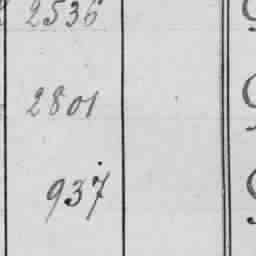 2536
2801
937